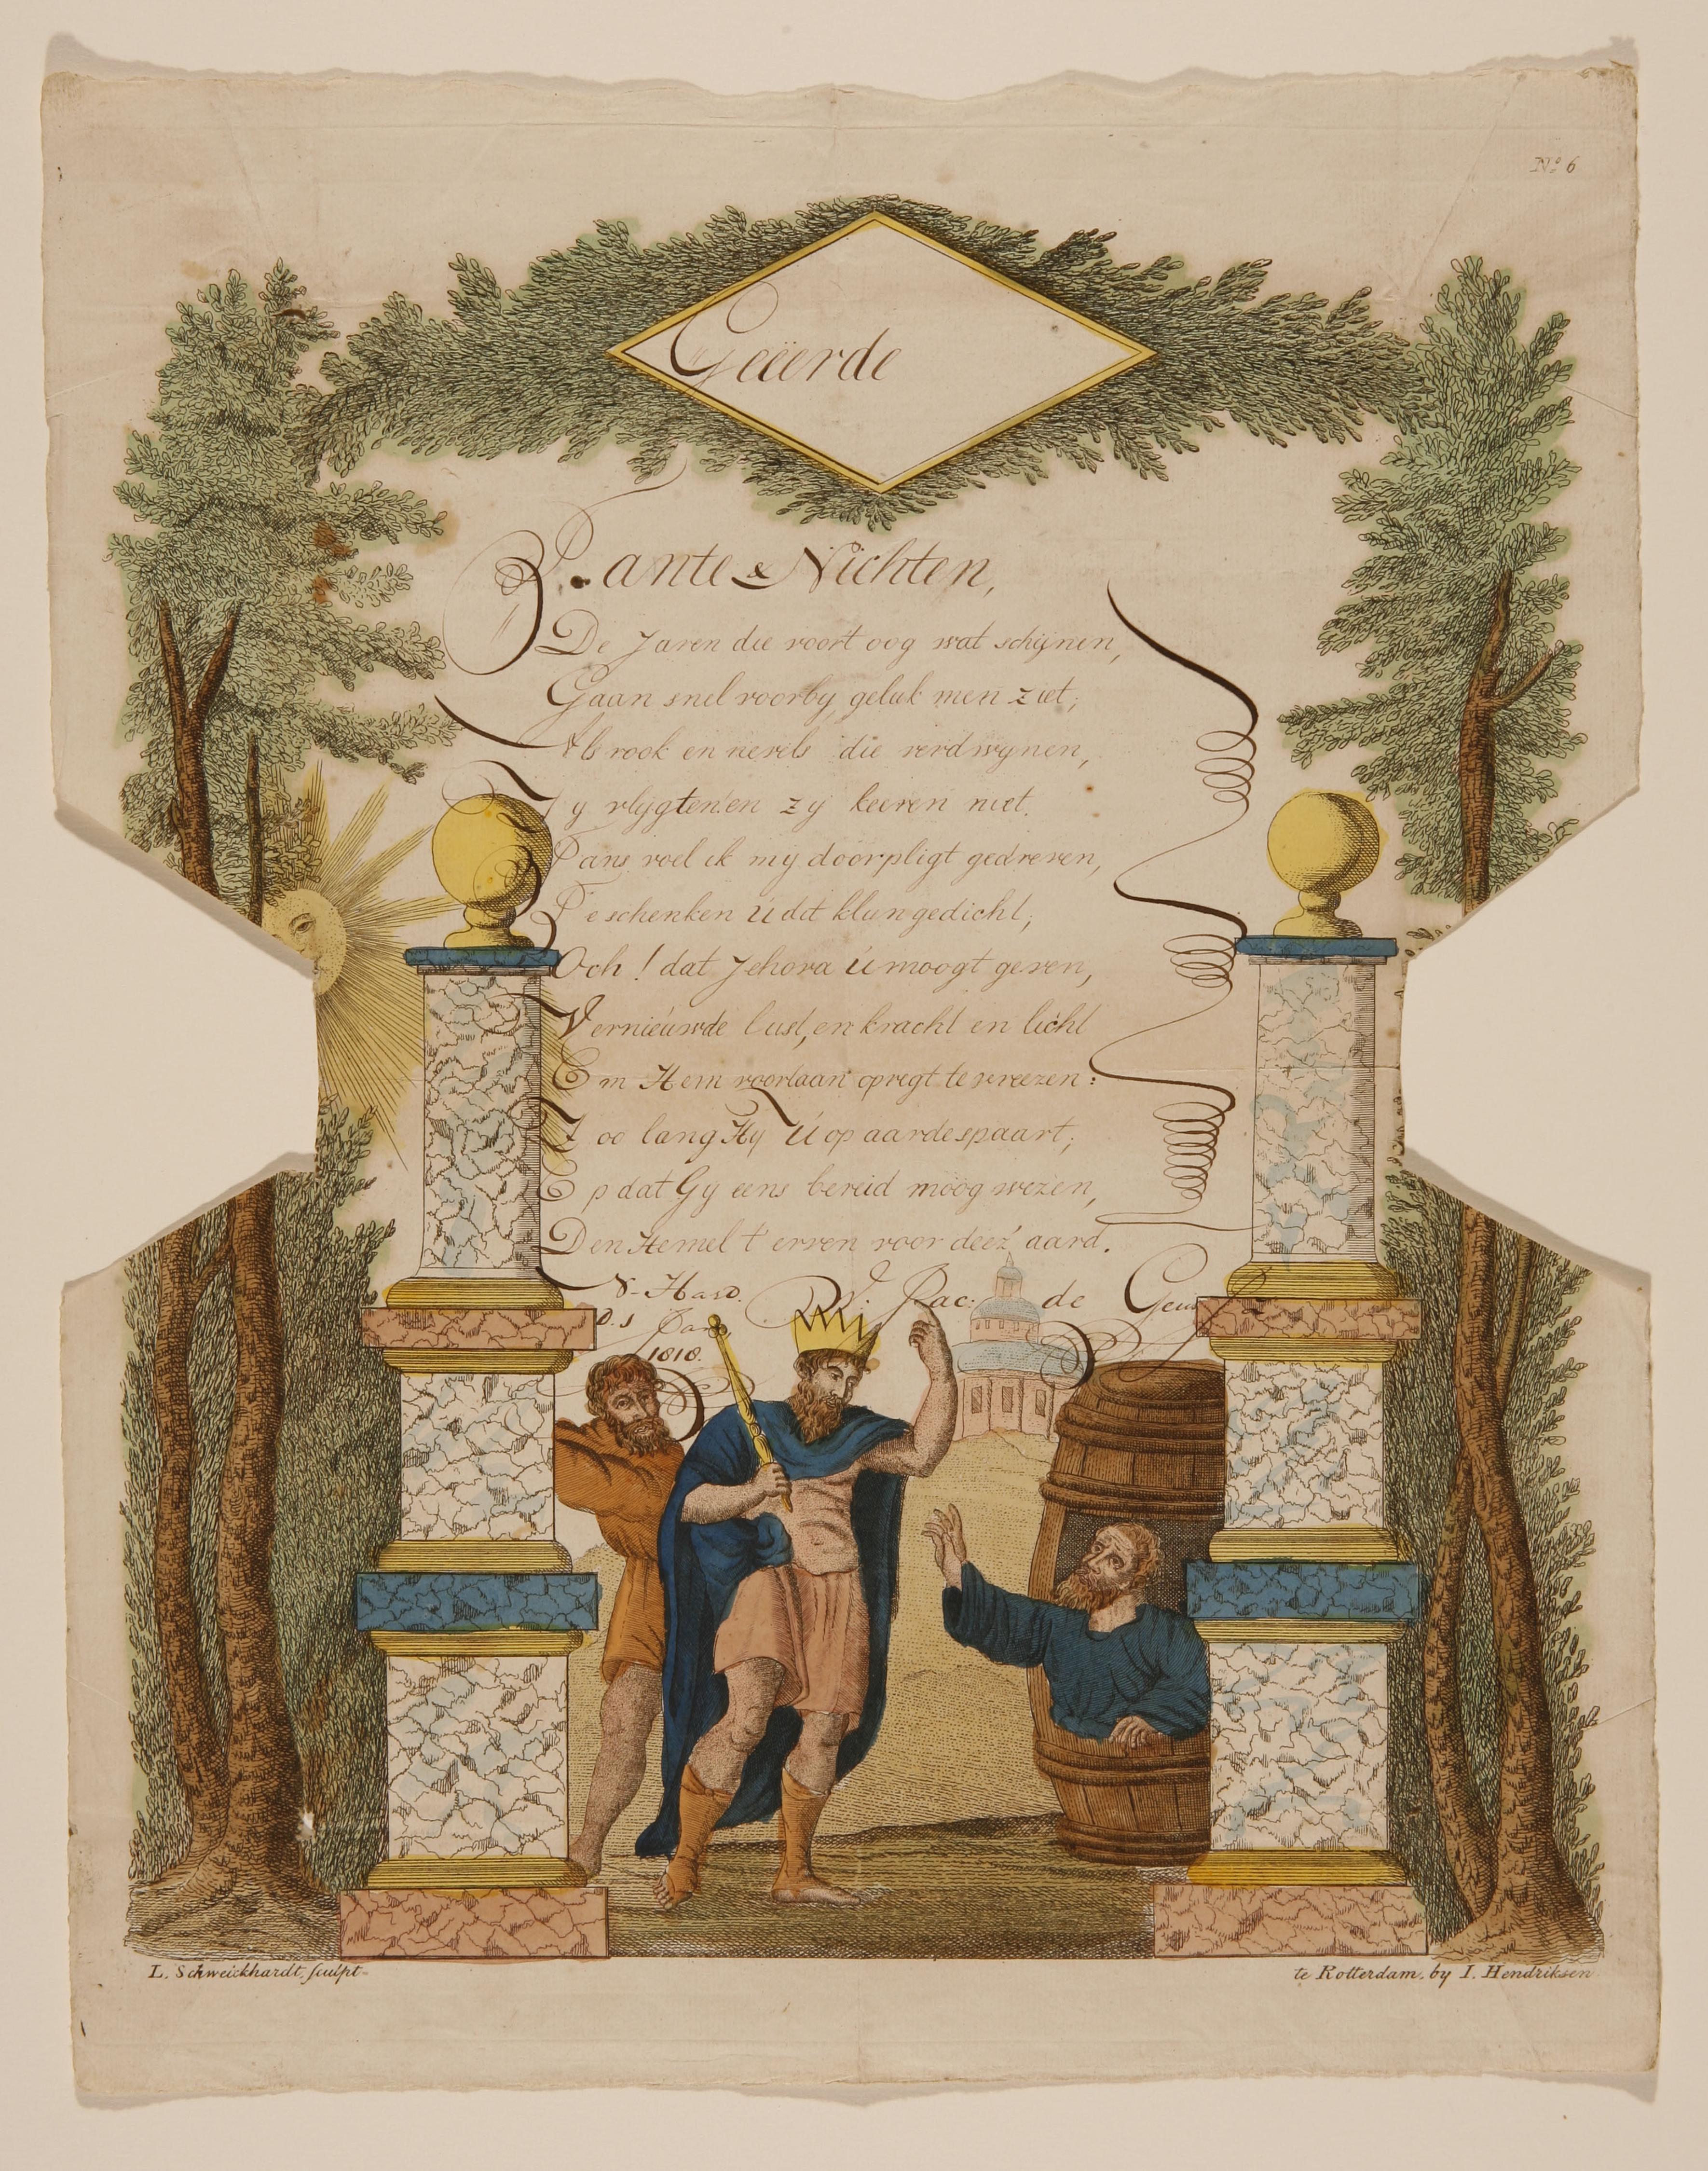 No. 6
Geëerde
Tante & Nichten,
De Jaren die voort oog wat schijnen,
Gaan snel voorby, geluk men ziet;
Als rook en nevels die verdwynen,
Zy vlijgten en zy keeren niet.
Tans voel ik mij door pligt gedreven,
Te schenken Ú dit klyn gedicht;
Och! dat Jehova Ú moogt geven,
Vernieúwde lust, en kracht en licht
Om Hem voortaan opregt te vreezen:
Zoo lang Hy Ú op aarde spaart;
Opdat Gy eens bereid moog wezen,
Den Hemel t' erven voor deez' aard.
N-Hard.
W: Jac: de
D. 1 Jan.
1818.
L. Schweickhardt, sculpt
te Rotterdam, by I. Hendriksen